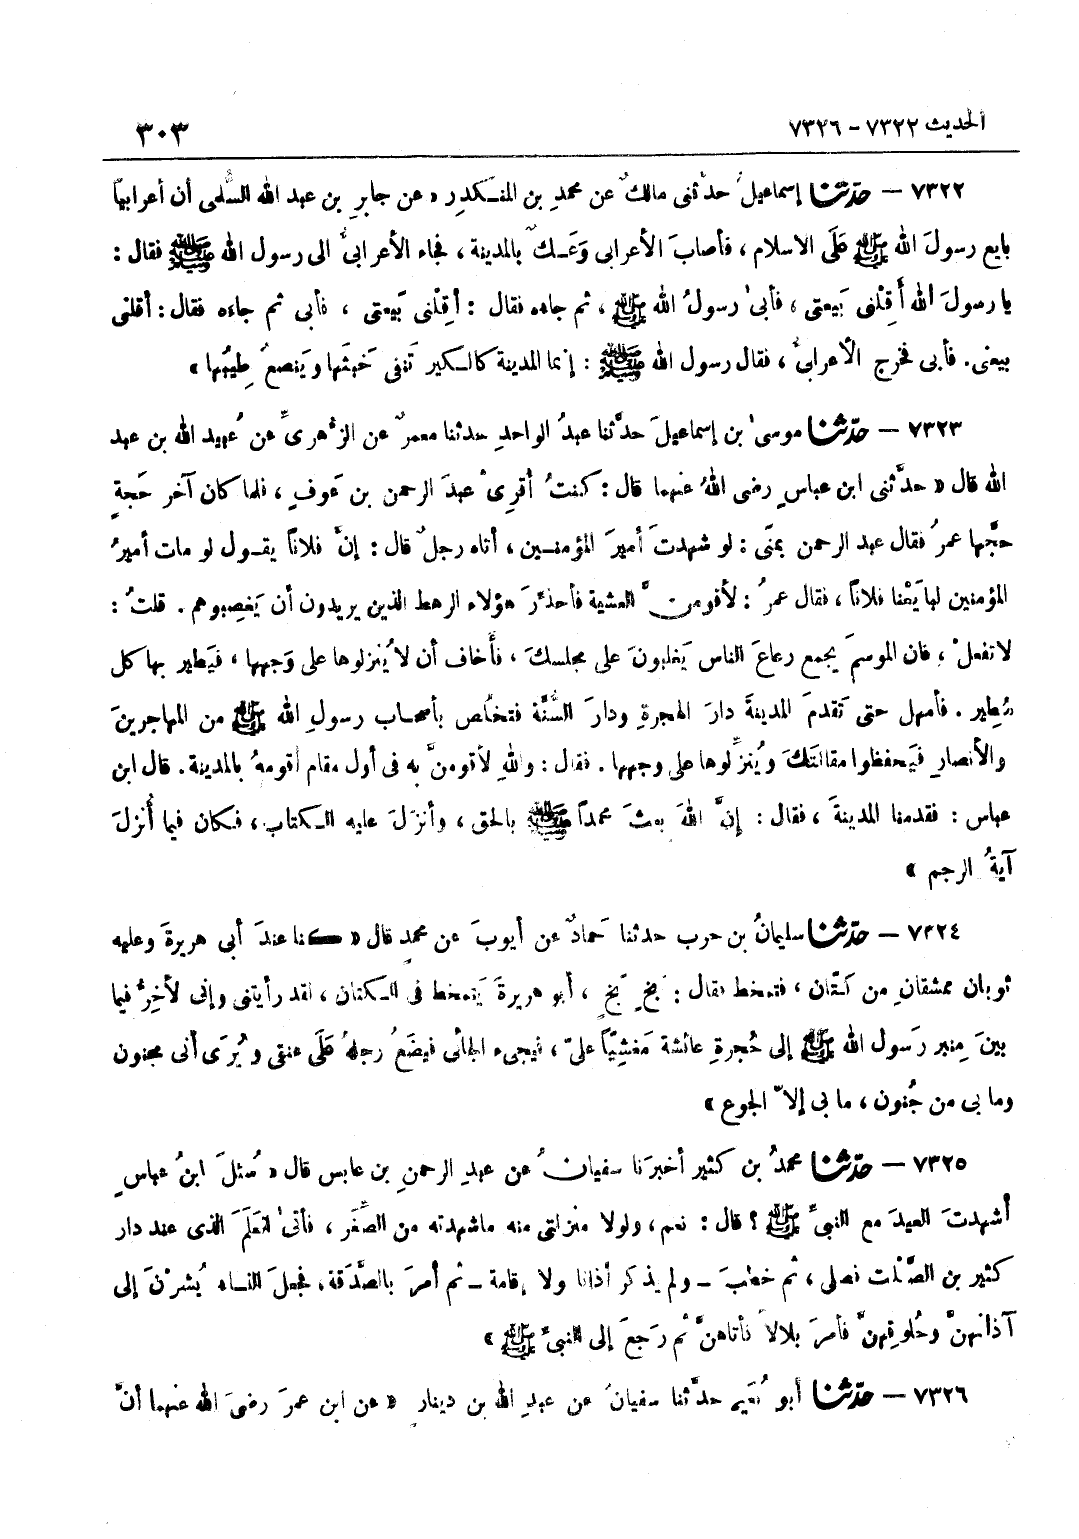 الحديث ٧٣٢٢ – ٧٣٢٦
٣٠٣
٧٣٢٢ — حدّثنا إسماعيلُ حدّثنى مالكٌ عن محمدِ بن المنكدِر « عن جابرِ بن عبد الله السَّلمى أن أعرابيا
بايع رسولَ الله ﷺ عَلَى الاسلام ، فأصابَ الأعرابى وَعَـكٌ بالمدينة ، فجاء الأعرابىُّ الى رسول الله ﷺ فقال :
يا رسولَ الله أَقِلْنى بَيعتى ، فأبىٰ رسولُ الله ﷺ ، ثم جاءه فقال : أقِلْنى بَيعتى ، فأبى ثم جاءه فقال : أقلنى
بيعتى . فأبى فخرج الأعرابىُّ ، فقال رسول الله ﷺ : إنما المدينة كالكير تَنفى خَبثها ويَنصعُ طِيبُها »
٧٣٢٣ — حدّثنا موسىٰ بن إسماعيلَ حدَّثنا عبدُ الواحدِ حدثنا معمرٌ عن الزُّهرىِّ عن عُبيد الله بن عبد
الله قال « حدَّثنى ابن عباسٍ رضى اللهُ عنهما قال : كنتُ أقرِىْ عبدَ الرحمن بن عَوفٍ ، فلما كان آخر حَجةٍ
حجَّها عمرُ فقال عبد الرحمن بمنًى : لو شهدتَ أميرَ المؤمنـين ، أتاه رجلٌ قال : إنَّ فلاناً يقـول لو مات أميرُ
المؤمنين لبايَعْنا فلاناً ، فقال عمرُ : لأقومنَّ العشية فأحذِّرَ هؤلاء الرهط الذين يريدون أن يَغصِبوهم . قلتُ :
لاتفعلْ ، فان الموسمَ يجمع رعاعَ الناس يَغلبونَ على مجلسكَ ، فأخاف أن لا يُنزلوها على وَجهها ، فيَطير بها كل
مُطِير . فأمهل حتى تَقدمَ المدينةَ دارَ الهجرةِ ودارَ السُّنَّة فتخلُص بأصحاب رسولِ الله ﷺ من المهاجرينَ
والأنصارِ فيَحفظوا مقالتَكَ ويُنزِّلوها على وجهها . فقال : واللهِ لأقومنَّ به فى أول مقام أقومهُ بالمدينة . قال ابن
عباس : فقدمنا المدينةَ ، فقال : إنَّ اللهَ بعثَ محمداً ﷺ بالحق ، وأنزلَ عليه الـكتاب ، فـكان فيما أُنزلَ
آيةُ الرجم »
٧٣٢٤ — حدّثنا سليمانُ بن حرب حدثنا حَمادٌ عن أيوبَ عن محمدٍ قال « كنا عندَ أبى هريرةَ وعليه
ثوبان ممشقانِ من كتّان ، فتمخط فقال : بَخٍ بَخٍ ، أبو هريرةَ يَتمخط فى الـكتان ، لقد رأيتنى وإنى لأخِرُّ فيما
بينَ مِنبر رَسول الله ﷺ إلى حُجرةِ عائشة مَغشِيّاً علىَّ ، فيجىء الجائى فيضَعُ رجلهُ عَلَى عنقى ويُرَى أنى مجنون
وما بى من جُنون ، ما بى إلاّ الجوع »
٧٣٢٥ — حدّثنا محمدُ بن كثير أخبرَنا سفيانُ عن عبدِ الرحمنِ بن عابس قال « سُئلَ ابنُ عباسٍ
أشهدتَ العيدَ مع النبىِّ ﷺ ؟ قال : نعم ، ولولا منزلتى منه ماشهدته من الصِّغَر ، فأتىٰ العَلَمَ الذى عند دار
كثير بن الصَّلت فصلى ، ثم خطبَ ــ ولم يذكر أذانا ولا إقامة ــ ثم أمرَ بالصَّدَقة ، فجعلَ النساء يُشرْنَ إلى
آذانهنَّ وحُلوقِهنَّ فأمرَ بلالاً فأتاهنَّ ثم رَجعَ إلى النبىِّ ﷺ »
٧٣٢٦ — حدّثنا أبو نُعَيم حدَّثنا سفيانُ عن عبدِ الله بن دينارٍ « عن ابن عمرَ رضىَ الله عنهما أنَّ